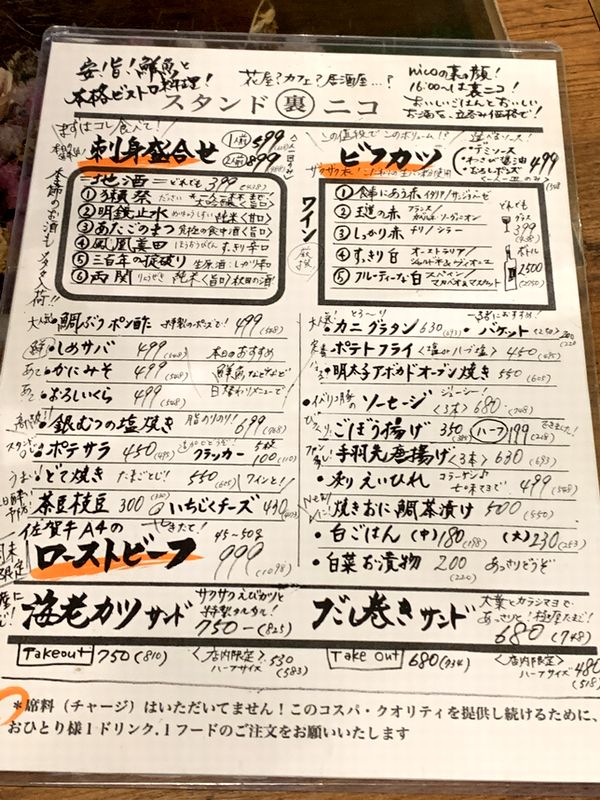 安い!旨い!鮮魚と
本格ビストロ料理!
花屋?カフェ?居酒屋…?
nicoの裏の顔!
16:00〜は裏ニコ!
おいしいごはんとおいしい
お酒を立呑み価格で!
スタンド 裏 ニコ
まずはコレ食べて!
刺身盛合せ
1人前 599
2人前 899
季節のお酒も多々入荷!!
地酒 どれでも 399
① 獺祭
② 明鏡止水 純米<旨口>
③ あたごのまつ 究極の食中酒<旨口>
④ 鳳凰美田 すっきり辛口
⑤ 三百年の掟破り 生原酒:しっかり辛口
⑥ 両関 純米<旨口>秋田の酒
この値段でこのボリューム!?
ビフカツ 499
選べるソース!
・デミソース
・わさび醤油
・おろしポン酢
ワイン
① 食事にあう赤 イタリア/サンジョベーゼ
② 王道の赤 フランス
③ しっかり赤 チリ/シラー
④ すっきり白 オーストラリア/
⑤ フルーティーな白 スペイン/
どれでも
グラス
399
ボトル
2500
大人気・鯛ぶつポン酢 特製のポン酢で! 499 (548)
・しめサバ 499 (548)
・かにみそ 499 (548)
・おろしいくら 499 (548)
本日のおすすめ
鮮魚などなど
日替わりメニューで!
・銀むつの塩焼き 脂のりのり! 699
・ポテサラ 450 (495)
クラッカー 5枚 100 (110)
・どて焼き たまごとじ! 550 (605)
ワインと!!
・茶豆枝豆 300
・いちじくチーズ 430
佐賀牛A4の
ローストビーフ
45〜50g
999 (1098)
・カニグラタン 630 (693)
・バケット
・ポテトフライ <塩orハーブ塩> 450 (495)
・明太子アボカドオーブン焼き 550 (605)
・ソーセージ ジューシー! <3本> 680 (748)
・ごぼう揚げ 350 (385) ハーフ 199
・手羽元唐揚げ <3本> 630 (693)
・炙りえいひれ 499 (548)
・焼きおに鯛茶漬け 500 (550)
・白ごはん (中) 180 (198) (大) 230 (253)
・白菜お漬物 200 (220) あっさりどうぞ
海老カツサンド
サクサクえびカツと
特製タルタル!
750- (825)
Takeout 750 (810)
<店内限定>
ハーフサイズ 530 (583)
だし巻きサンド
大葉とカラシマヨで
あっさりと!
680 (748)
Take out 680 (734)
<店内限定>
ハーフサイズ 480 (518)
*席料(チャージ)はいただいてません!このコスパ・クオリティを提供し続けるために、
おひとり様1ドリンク.1フードのご注文をお願いいたします